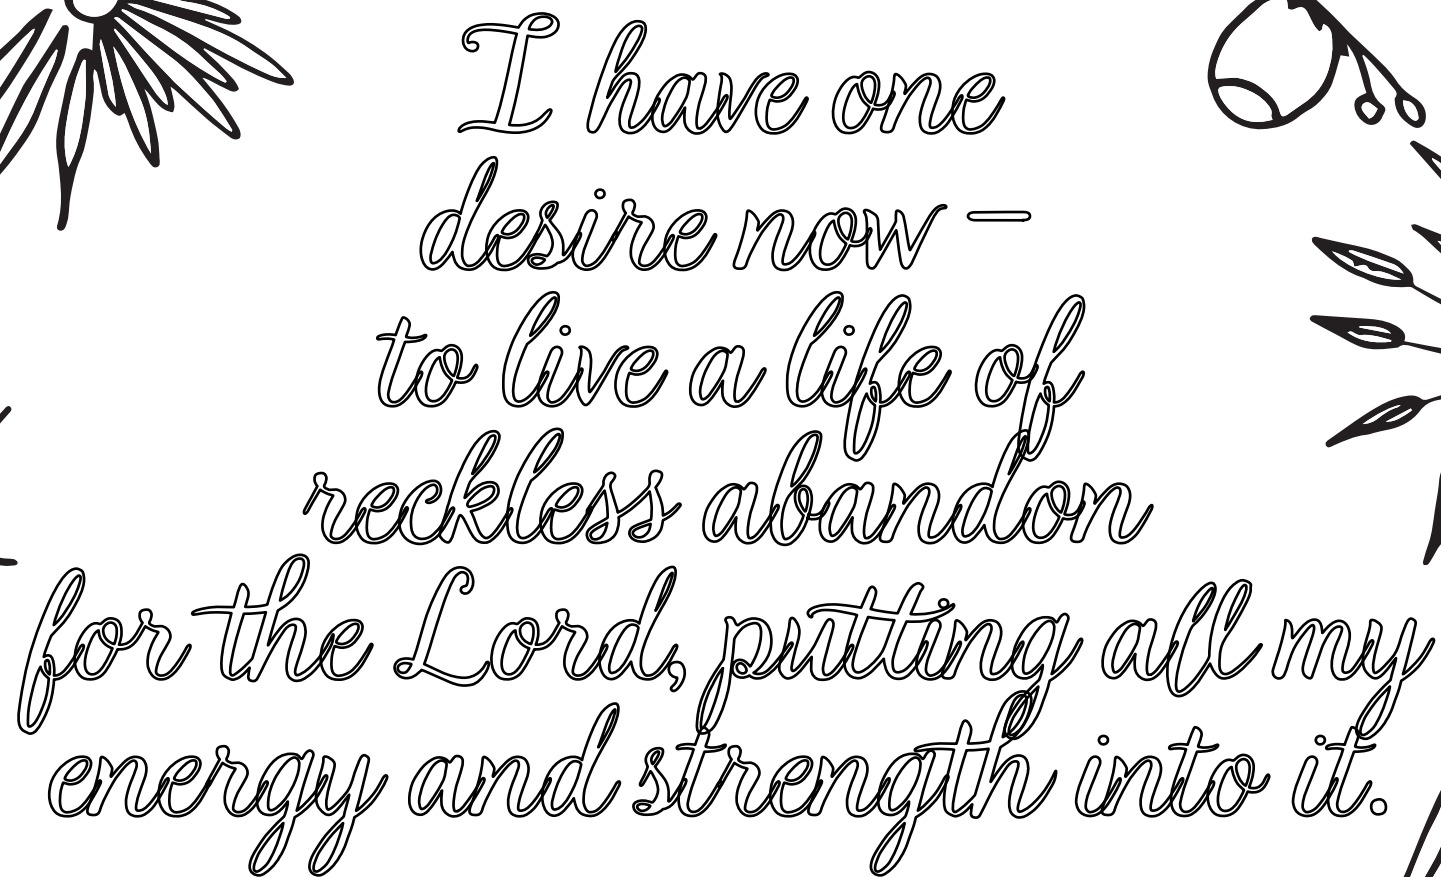 I have one
desire now –
to live a life of
reckless abandon
for the Lord, putting all my
energy and strength into it.